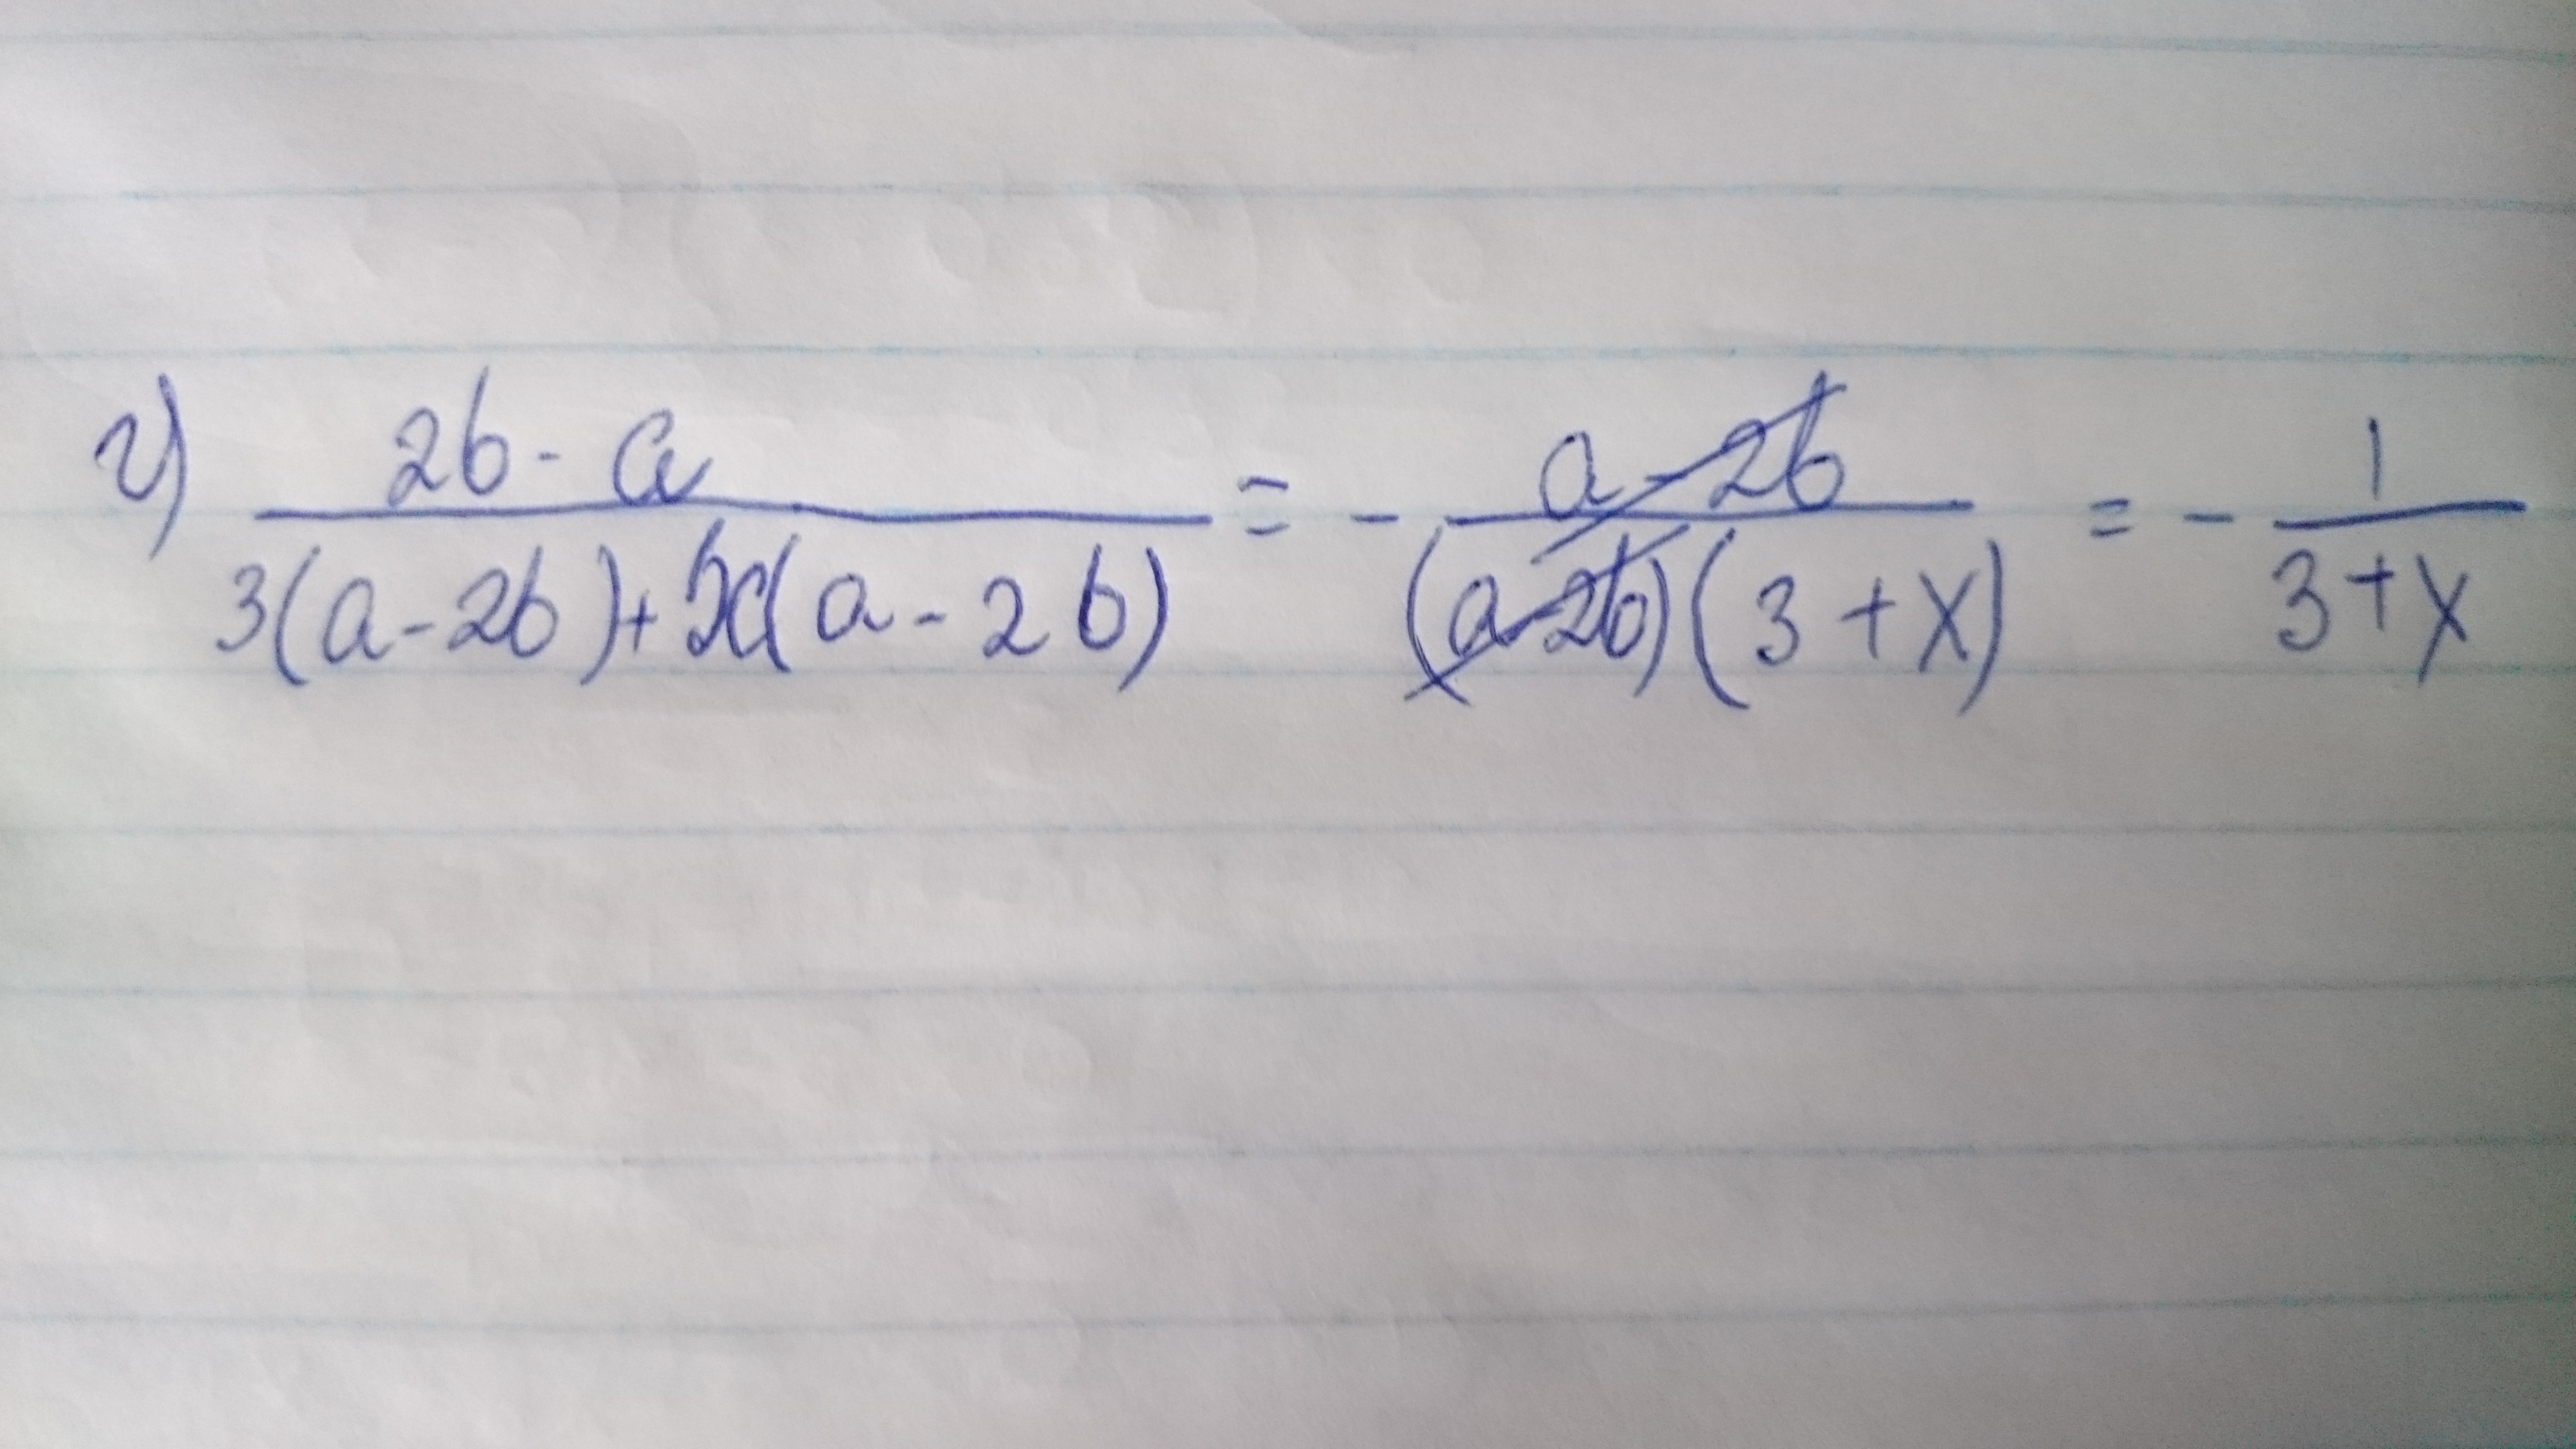 г) (2b - a)/(3(a-2b)+x(a-2b)) = - (a-2b)/((a-2b)(3+x)) = - 1/(3+x)